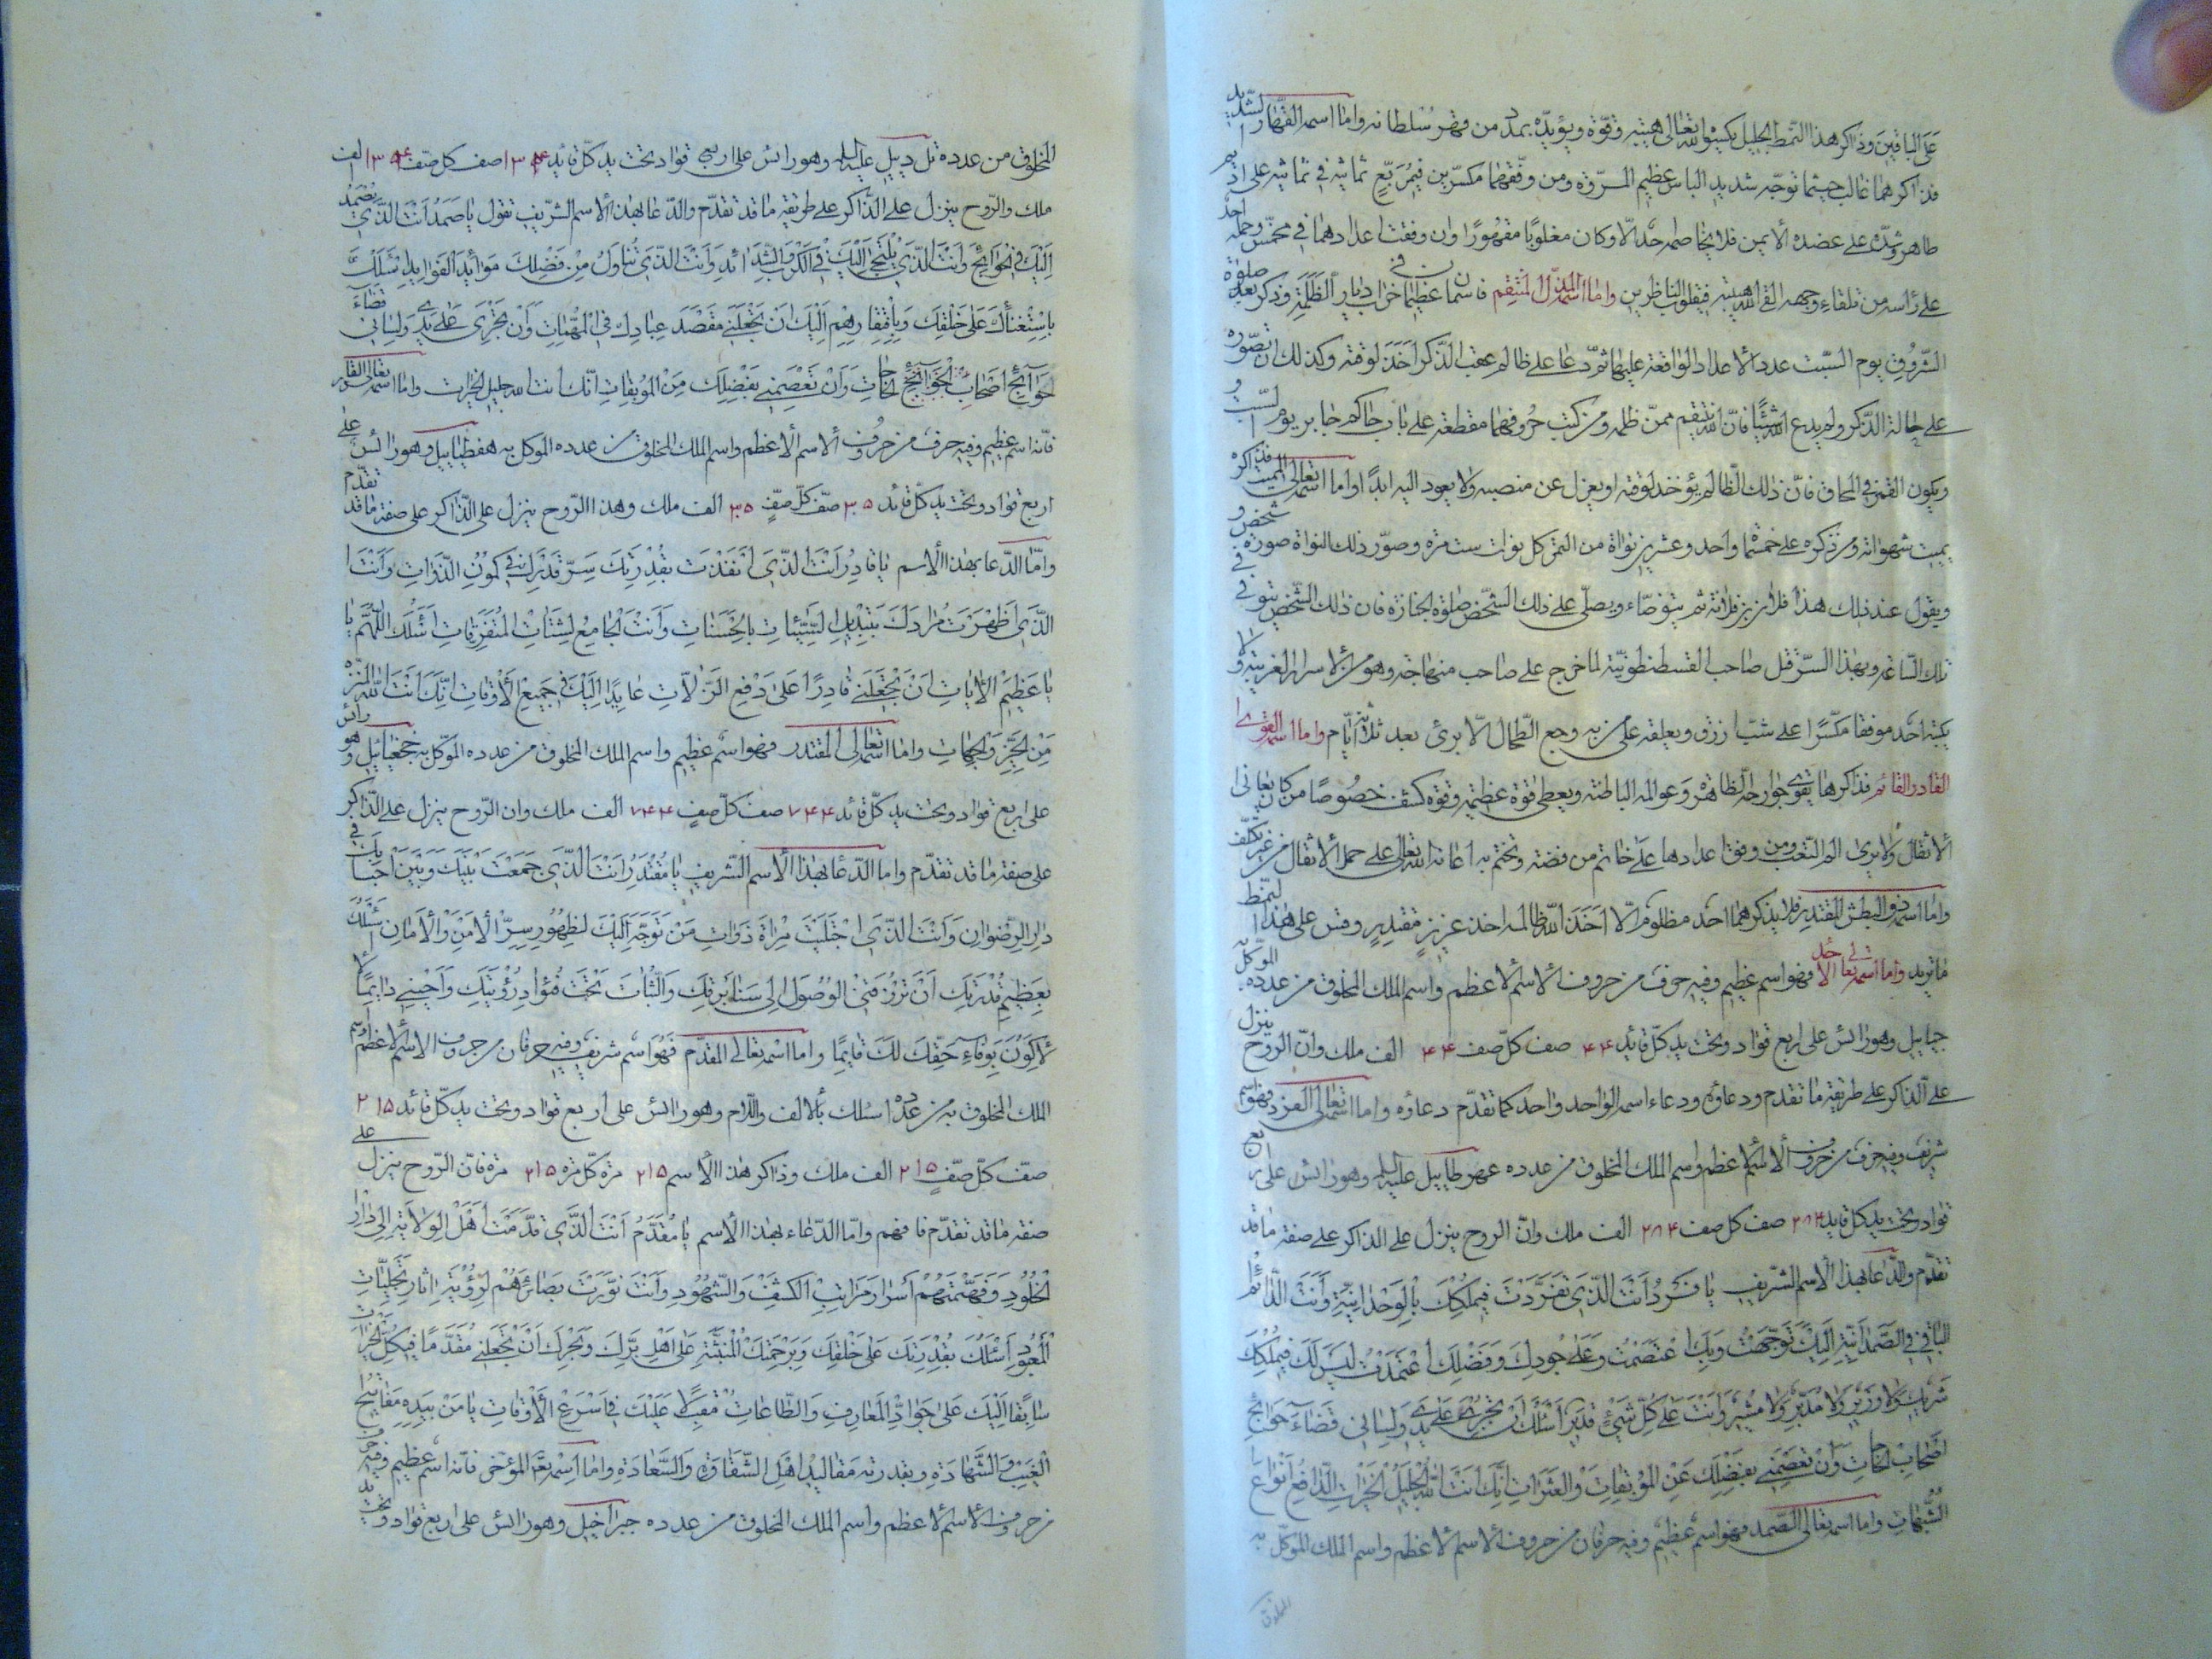 على الباقين وذاكر هذا النمط الجليل يكسوا لله تعالى هيبة وقوة ويؤيده بمدد من قهر سلطانه واما اسمه القهار الشديد
فذاكرهما غالب حيثما توجه شديد الباس عظيم المسرة ومن وفقهما مكسرين في مربع ثمانية في ثمانية على اديم
طاهر وشده على عضده الايمن فلا يخاصمه احد الا وكان مغلوبا مقهورا وان وفقت اعدادهما في مخمس وجمله
على رأسه من تلقاء وجهه القا الله هيبته في قلوب الناظرين واما اسمه المذل المنتقم فاسمان عظيمان في خراب ديار الظلمة وذكر بعد صلوة
الشروق يوم السبت عدد الاعداد الواقعة عليها ثم دعا على ظالم عقب الذكر اخذ لوقته وكذلك ان تصوره
على حالة الذكر ولم يدع الله شيئا فان الله ينتقم ممن ظلمه ومن كتب حروفهما مقطعة على باب حاكم جابر يوم السبت و
ويكون القمر في المحاق فان ذلك الظالم يؤخذ لوقته او يعزل عن منصبه ولا يعود اليه ابدا واما اسمه تعالى المميت فذاكره
يميت شهواته ومن ذكره على خمسة واحد وعشرين نواة من التمر كل نواة ست مرة وصور ذلك النواة صورة شخص و
ويقول عند ذلك هذا فلان بن فلانة ثم يتوضاء ويصلي على ذلك الشخص صلوة الجنازة فان ذلك الشخص يتوفى في
تلك الساعة وبهذا السر قتل صاحب القسطنطونية لما خرج على صاحب منهاجه وهو من الاسرار الغريبة ولا
يكتبه احد موفقا مكسرا على شب ازرق ويعلقه على من به وجع الطحال الا برئ بعد ثلثة ايام واما اسمه القوي
القادر القائم فذاكرها يقوى جوارحه الظاهره وعوالمه الباطنة ويعطى قوة عظيمة وقوه كشف خصوصا من كان يعاني
الاثقال ولا يرى الم التعب ومن وفق اعدادها على خاتم من فضة وتختم به اعانه الله تعالى على حمل الاثقال من غير تكلف
واما اسمه ذو البطش المقتدر فلا يذكرهما احد مظلوم الا اخذ الله ظالمه اخذ عزيز مقتدر وقس على هذا النمط
ما تريد واما اسمه تعالى الاحد فهو اسم عظيم وفيه حرف من حروف الاسم الاعظم واسم الملك المخلوق من عدده الموكل
جيايل وهو رائس على اربع قواد وتحت يد كل قائد ۴۴ صف كل صف ۴۴ الف ملك وان الروح ينزل
على الذاكر على طريقة ما تقدم ودعاؤه ودعاء اسمه الواحد واحد كما تقدم دعاؤه واما اسمه تعالى الفرد فهو اسم
شريف وفيه حرف من حروف الاسم الاعظم واسم الملك المخلوق من عدده عهوطاييل عليه السلم وهو رائس على اربع
قواد وتحت يد كل قايد ۲۸۴ صف كل صف ۲۸۴ الف ملك وان الروح ينزل على الذاكر على صفة ما قد
تقدم والدعا بهذا الاسم الشريف يا فرد انت الذي تفردت في ملكك بالوحدانية وانت الدائم
الباقي في الصمدانية اليك توجهت وبك اعتصمت وعلى جودك وفضلك اعتمدت ليس لك في ملكك
شريك ولا وزير ولا مدبر ولا مشير وانت على كل شيئ قدير اسئلك ان تجري على يدي ولساني قضاء حوايج
اصحاب الحاجات وان تعصمني بفضلك عن الموبقات والعثرات انك انت الله الجليل الخيرات الدافع انواع
الشبهات واما اسمه تعالى الصمد فهو اسم عظيم وفيه حرفان من حروف الاسم الاعظم واسم الملك الموكل به
المخلوق
المخلوق من عدده ثل دييل عليه السلم وهو رائس على اربعة قواد تحت يد كل قائد ۱۳۴ صف كل صف ۱۳۴ الف
ملك والروح ينزل على الذاكر على طريقة ما قد تقدم والدعا بهذا الاسم الشريف تقول يا صمد انت الذي يصمد
اليك في الحوايج وانت الذي يلتجي اليك في الكرب والشدائد وانت الذي تناول من فضلك موائد الفوايد اسئلك
باستغنائك على خلقك وبافتقارهم اليك ان تجعلني مقصد عبادك في المهمات وان تجري على يدي ولساني قضاء
حوآئج اصحاب الحوآئج الحاجات وان تعصمني بفضلك من الموبقات انك انت الله جليل الخيرات واما اسمه تعالى القادر
فانه اسم عظيم وفيه حرف من حروف الاسم الاعظم واسم الملك المخلوق من عدده الموكل به هفطيابيل وهو رائس على
اربع قواد وتحت يد كل قائد ۳۰۵ صف كل صف ۳۰۵ الف ملك وهذا الروح ينزل على الذاكر على صفة ما قد تقدم
واما الدعا بهذا الاسم يا قادر انت الذي انفذت بقدرتك سر قدرتك في كمون الذرات وانت
الذي اظهرت مرادك بتبديل السيئات بالحسنات وانت الجامع لشتات المتفرقات اسئلك اللهم يا
يا عظيم الايات ان تجعلني قادرا على دفع الزلات عايدا اليك في جميع الاوقات انك انت الله المنزه
من الحيز والجهات واما اسمه تعالى المقتدر فهو اسم عظيم واسم الملك المخلوق من عدده الموكل به جمعيائيل وهو رائس
على اربع قواد وتحت يد كل قائد ۷۴۴ صف كل صف ۷۴۴ الف ملك وان الروح ينزل على الذاكر
على صفة ما قد تقدم واما الدعا بهذا الاسم الشريف يا مقتدر انت الذي جمعت بينك وبين احبابك في
دار الرضوان وانت الذي اجتليت مرآة ذوات من توجه اليك لظهور سر الامن والامان اسئلك
بعظيم قدرتك ان ترزقني الوصول الى سنا برقك والثبات تحت فؤاد رؤيتك واحيني دايما
لاكون بوفاء حقك لك قايما واما اسمه تعالى المقدم فهو اسم شريف وفيه حرفان من حروف الاسم الاعظم واسم
الملك المخلوق به من عدده اسئلك بالالف واللام وهو رائس على اربع قواد وتحت يد كل قائد ۲۱۵
صف كل صف ۲۱۵ الف ملك وذاكر هذا الاسم ۲۱۵ مرة كل مرة ۲۱۵ مرة فان الروح ينزل على
صفة ما قد تقدم فافهم واما الدعاء بهذا الاسم يا مقدم انت الذي قدمت اهل الولاية الى دار
الخلود وفهمتهم اسرار مراتب الكشف والشهود وانت نورت بصائرهم لرؤية اثار تجليات
المعبود اسئلك بقدرتك على خلقك وبرحمتك المنبثة على اهل برك وبحرك ان تجعلني مقدما في كل الخيرات
سابقا اليك على جواد المعارف والطاعات مقبلا عليك في اسرع الاوقات يا من بيده مفاتيح
الغيب والشهادة وبقدرته مقاليد اهل الشقاوة والسعادة واما اسمه تعالى المؤخر فانه اسم عظيم وفيه حرف
من حروف الاسم الاعظم واسم الملك المخلوق من عدده جبراخيل وهو رائس على اربع قواد وتحت يد